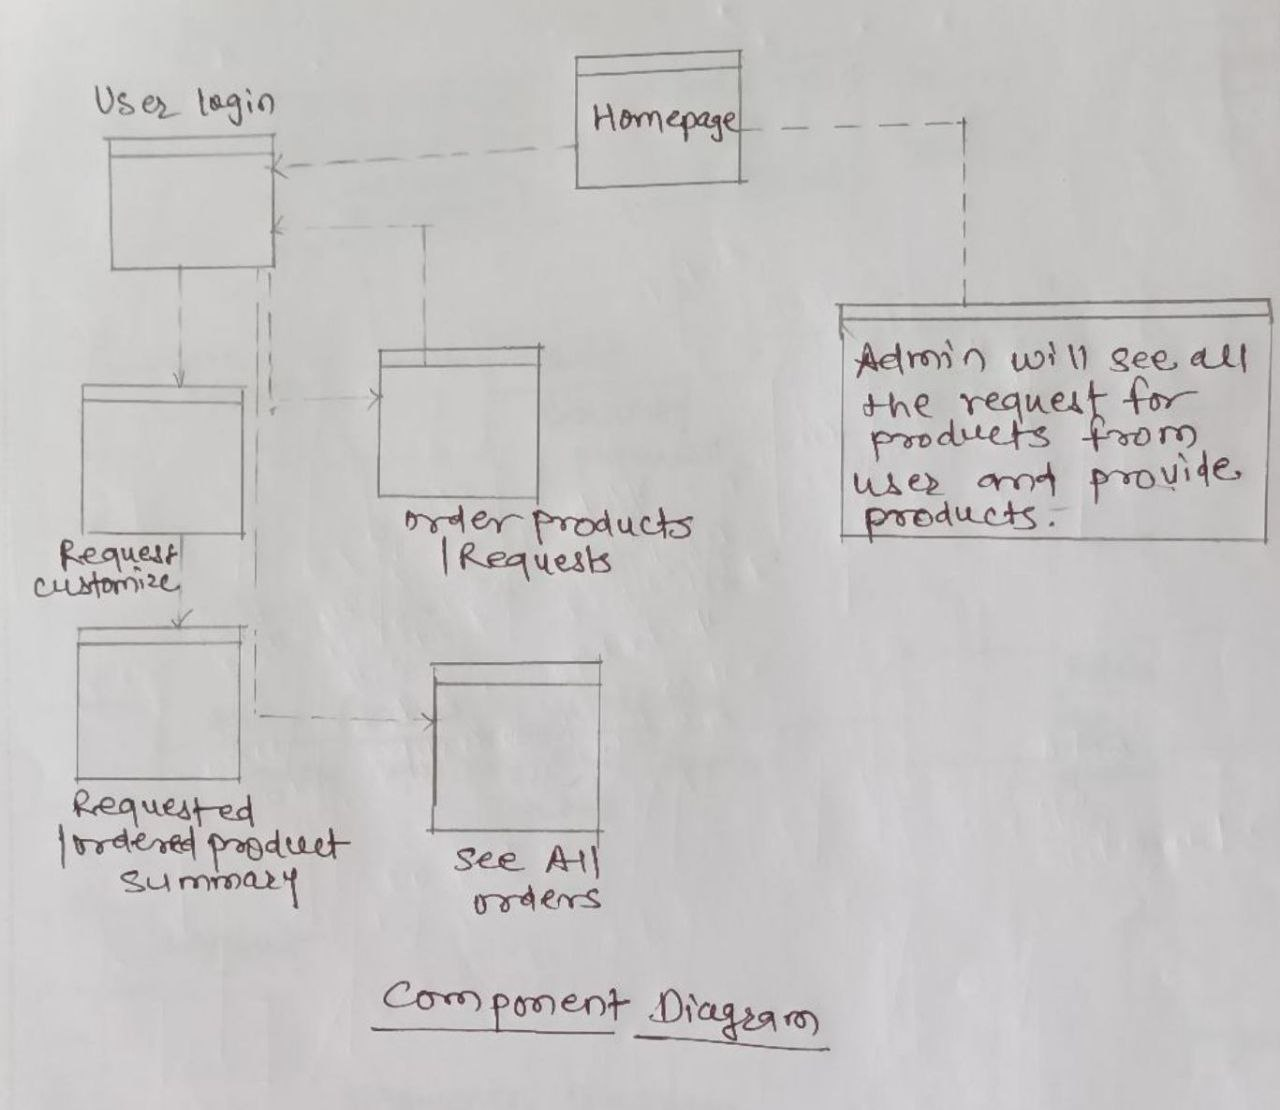 User login
Homepage
Admin will see all
the request for
products from
user and provide
products.
Request
customize
order products
/Requests
Requested
/ordered product
summary
see All
orders
Component Diagram